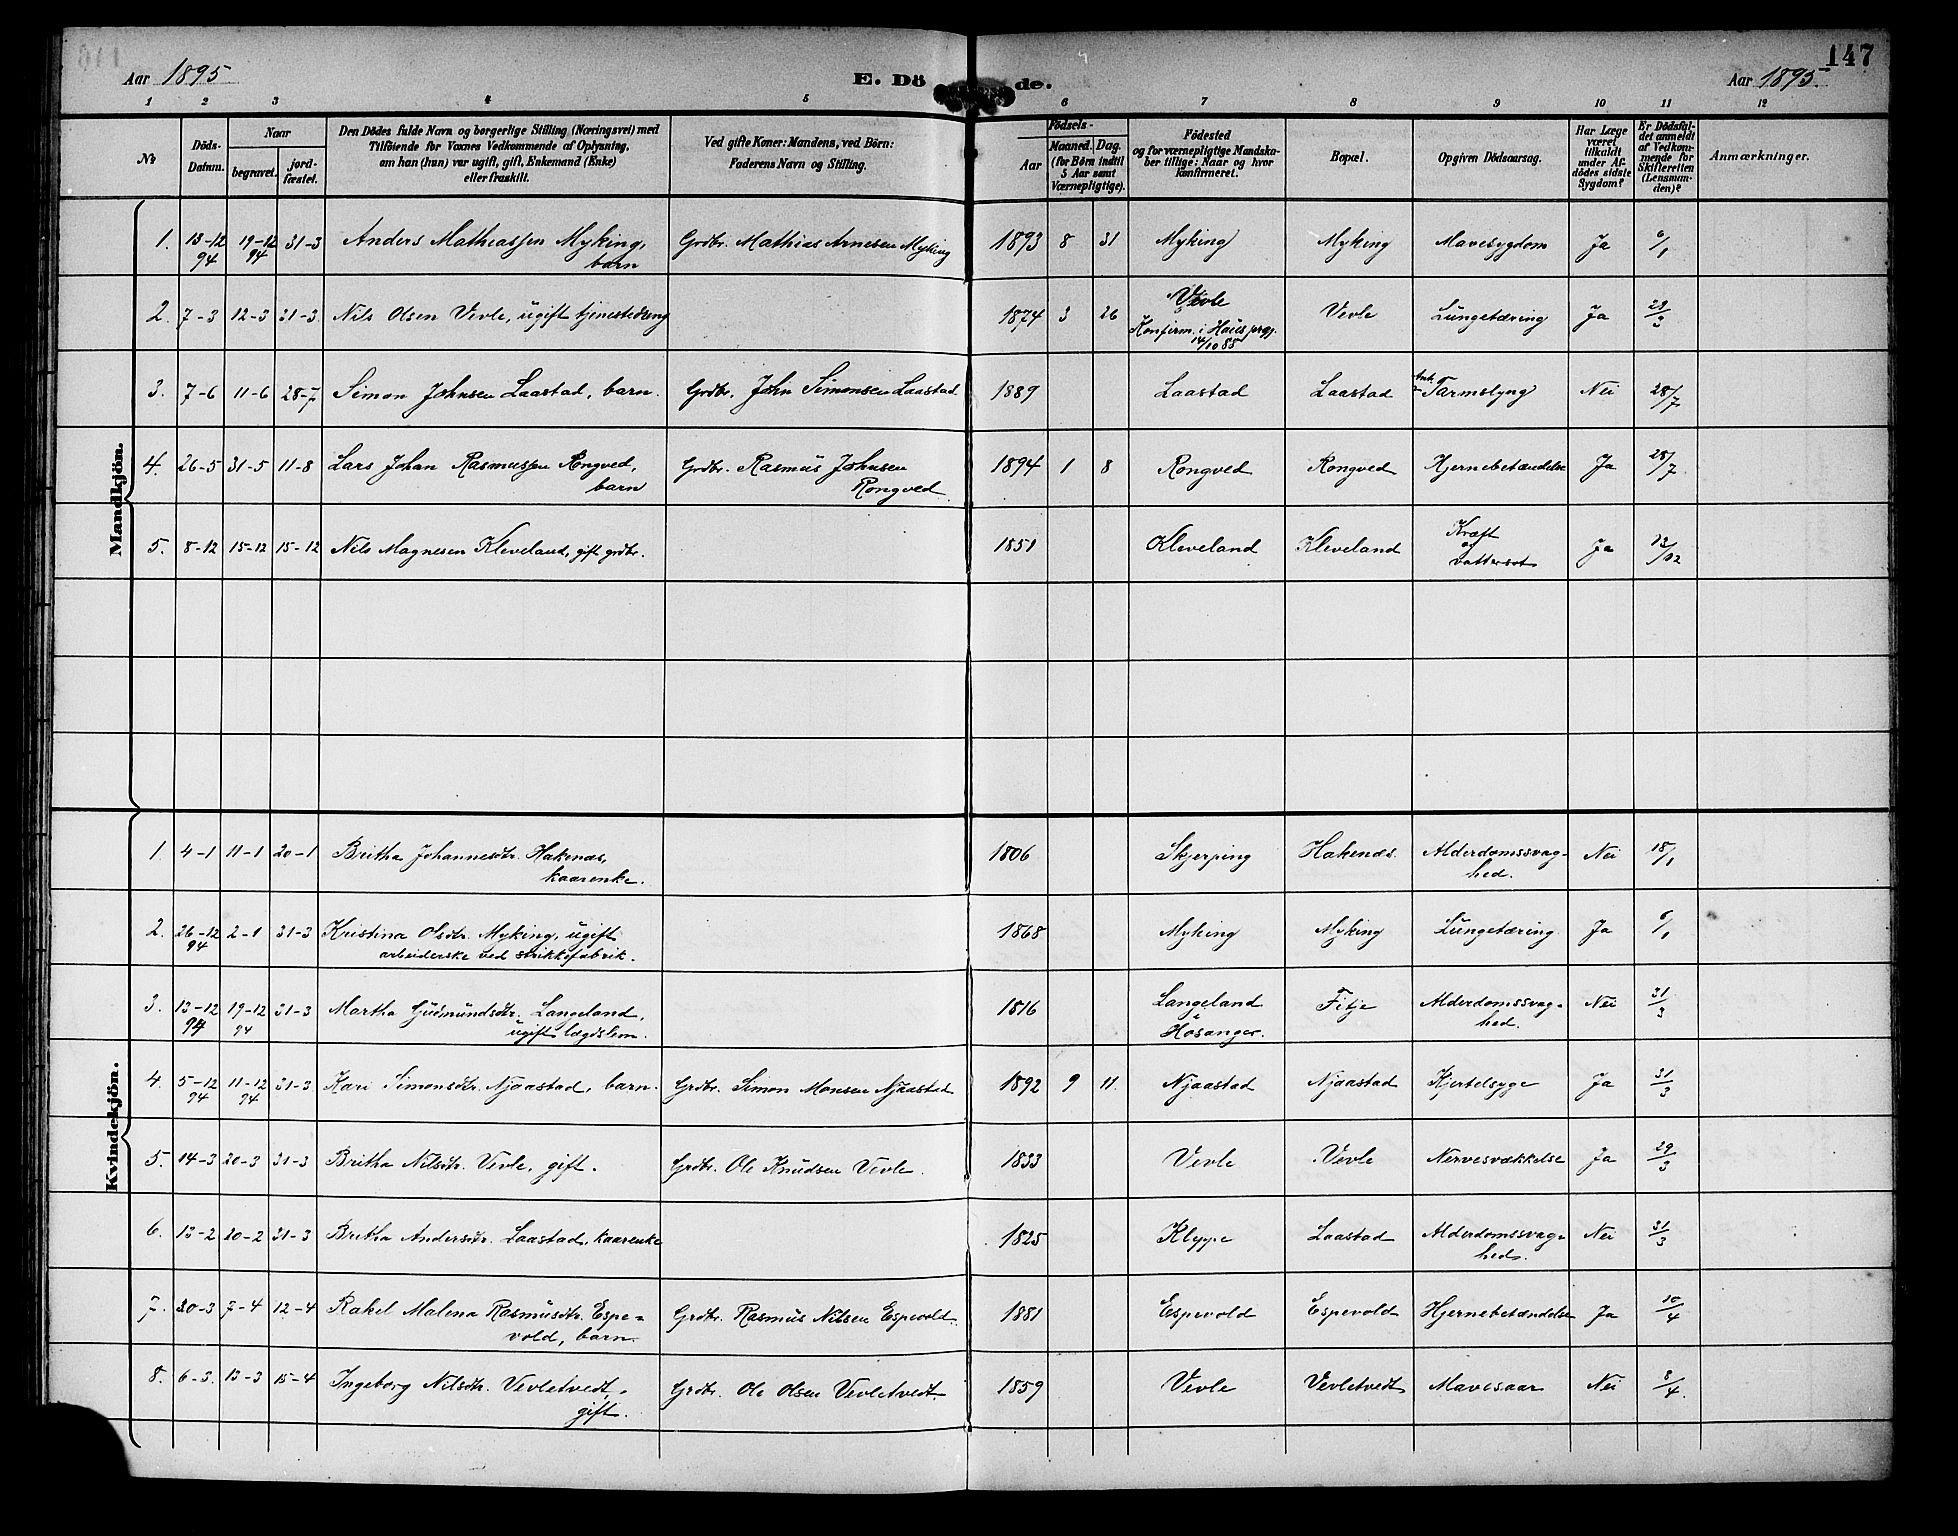 Aar 1895
E. Dö de.
Aar 1895.
147
1 2 3 4 5 6 7 8 9 10 11 12
No
Döds-Datum.
Naar
begravet. jordfæstet.
Den Dödes fulde Navn og borgerlige Stilling (Næringsvei) med
Tilföiende for Voxnes Vedkommende af Oplysning,
om han (hun) var ugift, gift, Enkemand (Enke)
eller fraskilt.
Ved gifte Koner: Mandens, ved Börn:
Faderens Navn og Stilling.
Födsels-
Aar
Maaned. Dag.
(for Börn indtil
5 Aar samt
Værnepligtige).
Födested
og for værnepligtige Mandska-
ber tillige: Naar og hvor
konfirmeret.
Bopæl.
Opgiven Dödsaarsag.
Har Læge
været
tilkaldt
under Af-
dödes sidste
Sygdom?
Er Dödsfal-
det anmeldt
af Vedkom-
mende for
Skifteretten
(Lensman-
den)?
Anmærkninger.
Mandkjön.
1. 13-12 94 19-12 94 31-3 Anders Mathiassen Myking, barn Grdbr. Mathias Arnesen Myking 1893 8 31 Myking Myking Mavesygdom Ja 6/1
2. 7-3 12-3 31-3 Nils Olsen Vevle, ugift tjenestedreng 1874 3 26 Vevle Konfirm. i Haus prgj. 14/10 88 Vevle Lungetæring Ja 29/3
3. 7-6 11-6 28-7 Simon Johnsen Laastad, barn. Grdbr. John Simonsen Laastad 1889 Laastad Laastad Tarmslyng Nei 28/7
4. 26-5 31-5 11-8 Lars Johan Rasmussen Rongved, barn Grdbr. Rasmus Johnsen Rongved 1894 1 8 Rongved Rongved Hjernebetændelse Ja 28/7
5. 8-12 15-12 15-12 Nils Magnesen Kleveland, gift grdbr. 1851 Kleveland Kleveland Kræft og vattersot Ja /12
Kvindekjön.
1. 4-1 11-1 20-1 Britha Johannesdtr. Hakenæs, kaarenke. 1806 Skjerping Hakenæs. Alderdomssvag-hed. Nei 18/1
2. 26-12 94 2-1 31-3 Kristina Olsdtr. Myking, ugift arbeiderske ved strikkefabrik. 1868 Myking Myking Lungetæring Ja 6/1
3. 13-12 94 19-12 94 31-3 Martha Gudmundsdtr. Langeland, ugift lægdslem. 1816 Langeland Hosanger. Fitje Alderdomssvag-hed. Nei 31/3
4. 5-12 94 11-12 94 31-3 Kari Simonsdtr. Njaastad, barn. Grdbr. Simon Monsen Njaastad 1892 9 11. Njaastad Njaastad Kjertelsyge Ja 31/3
5. 14-3 20-3 31-3 Britha Nilsdtr. Vevle, gift. Grdbr. Ole Knudsen Vevle. 1833 Vevle Vevle Nervesvækkelse Ja 29/3
6. 13-2 20-2 31-3 Britha Andersdtr. Laastad, kaarenke 1825 Kleppe Laastad Alderdomssvag-hed. Nei 31/3
7. 30-3 7-4 12-4 Rakel Malena Rasmusdtr. Espe-vold, barn. Grdbr. Rasmus Nilsen Espevold. 1881 Espevold Espevold Hjernebetændelse Ja 10/4
8. 6-3. 13-3 15-4 Ingeborg Nilsdtr. Vevletvedt, gift. Grdbr. Ole Olsen Vevletvedt. 1859 Vevle Vevletvedt Mavesaar Nei 8/4.